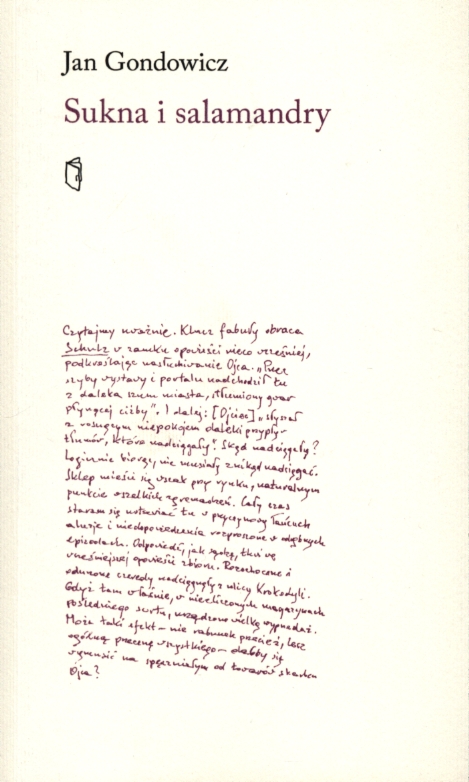 Jan Gondowicz
Sukna i salamandry
Czytajmy uważnie. Klucz fabuły obraca
Schulz w zamku opowieści nieco wcześniej,
podkreślając nasłuchiwanie Ojca. „Przez
szyby wystawy i portalu nadchodził tu
z daleka szum miasta, stłumiony gwar
płynącej ciżby”. I dalej: [Ojciec] „słyszał
z rosnącym niepokojem daleki przypływ
tłumów, które nadciągały”. Skąd nadciągały?
Logicznie biorąc, nie musiały znikąd nadciągać.
Sklep mieści się wszak przy rynku, naturalnym
punkcie wszelkich zgromadzeń. Cały czas
staram się ustawiać tu w przyczynowy łańcuch
aluzje i niedopowiedzenia rozproszone w odrębnych
epizodach. Odpowiedź, jak sądzę, tkwi we
wcześniejszej opowieści zbioru. Rozochocone i
czeredy nadciągnęły z ulicy Krokodyli.
Gdyż tam właśnie, w niezliczonych magazynach
pośledniego sortu, urządzono wielką wyprzedaż.
Może taki efekt – nie rabunek przecież, lecz
ogólną przecenę wszystkiego – dałby się
wymusić na spęczniałym od towarów skarbcu
Ojca?